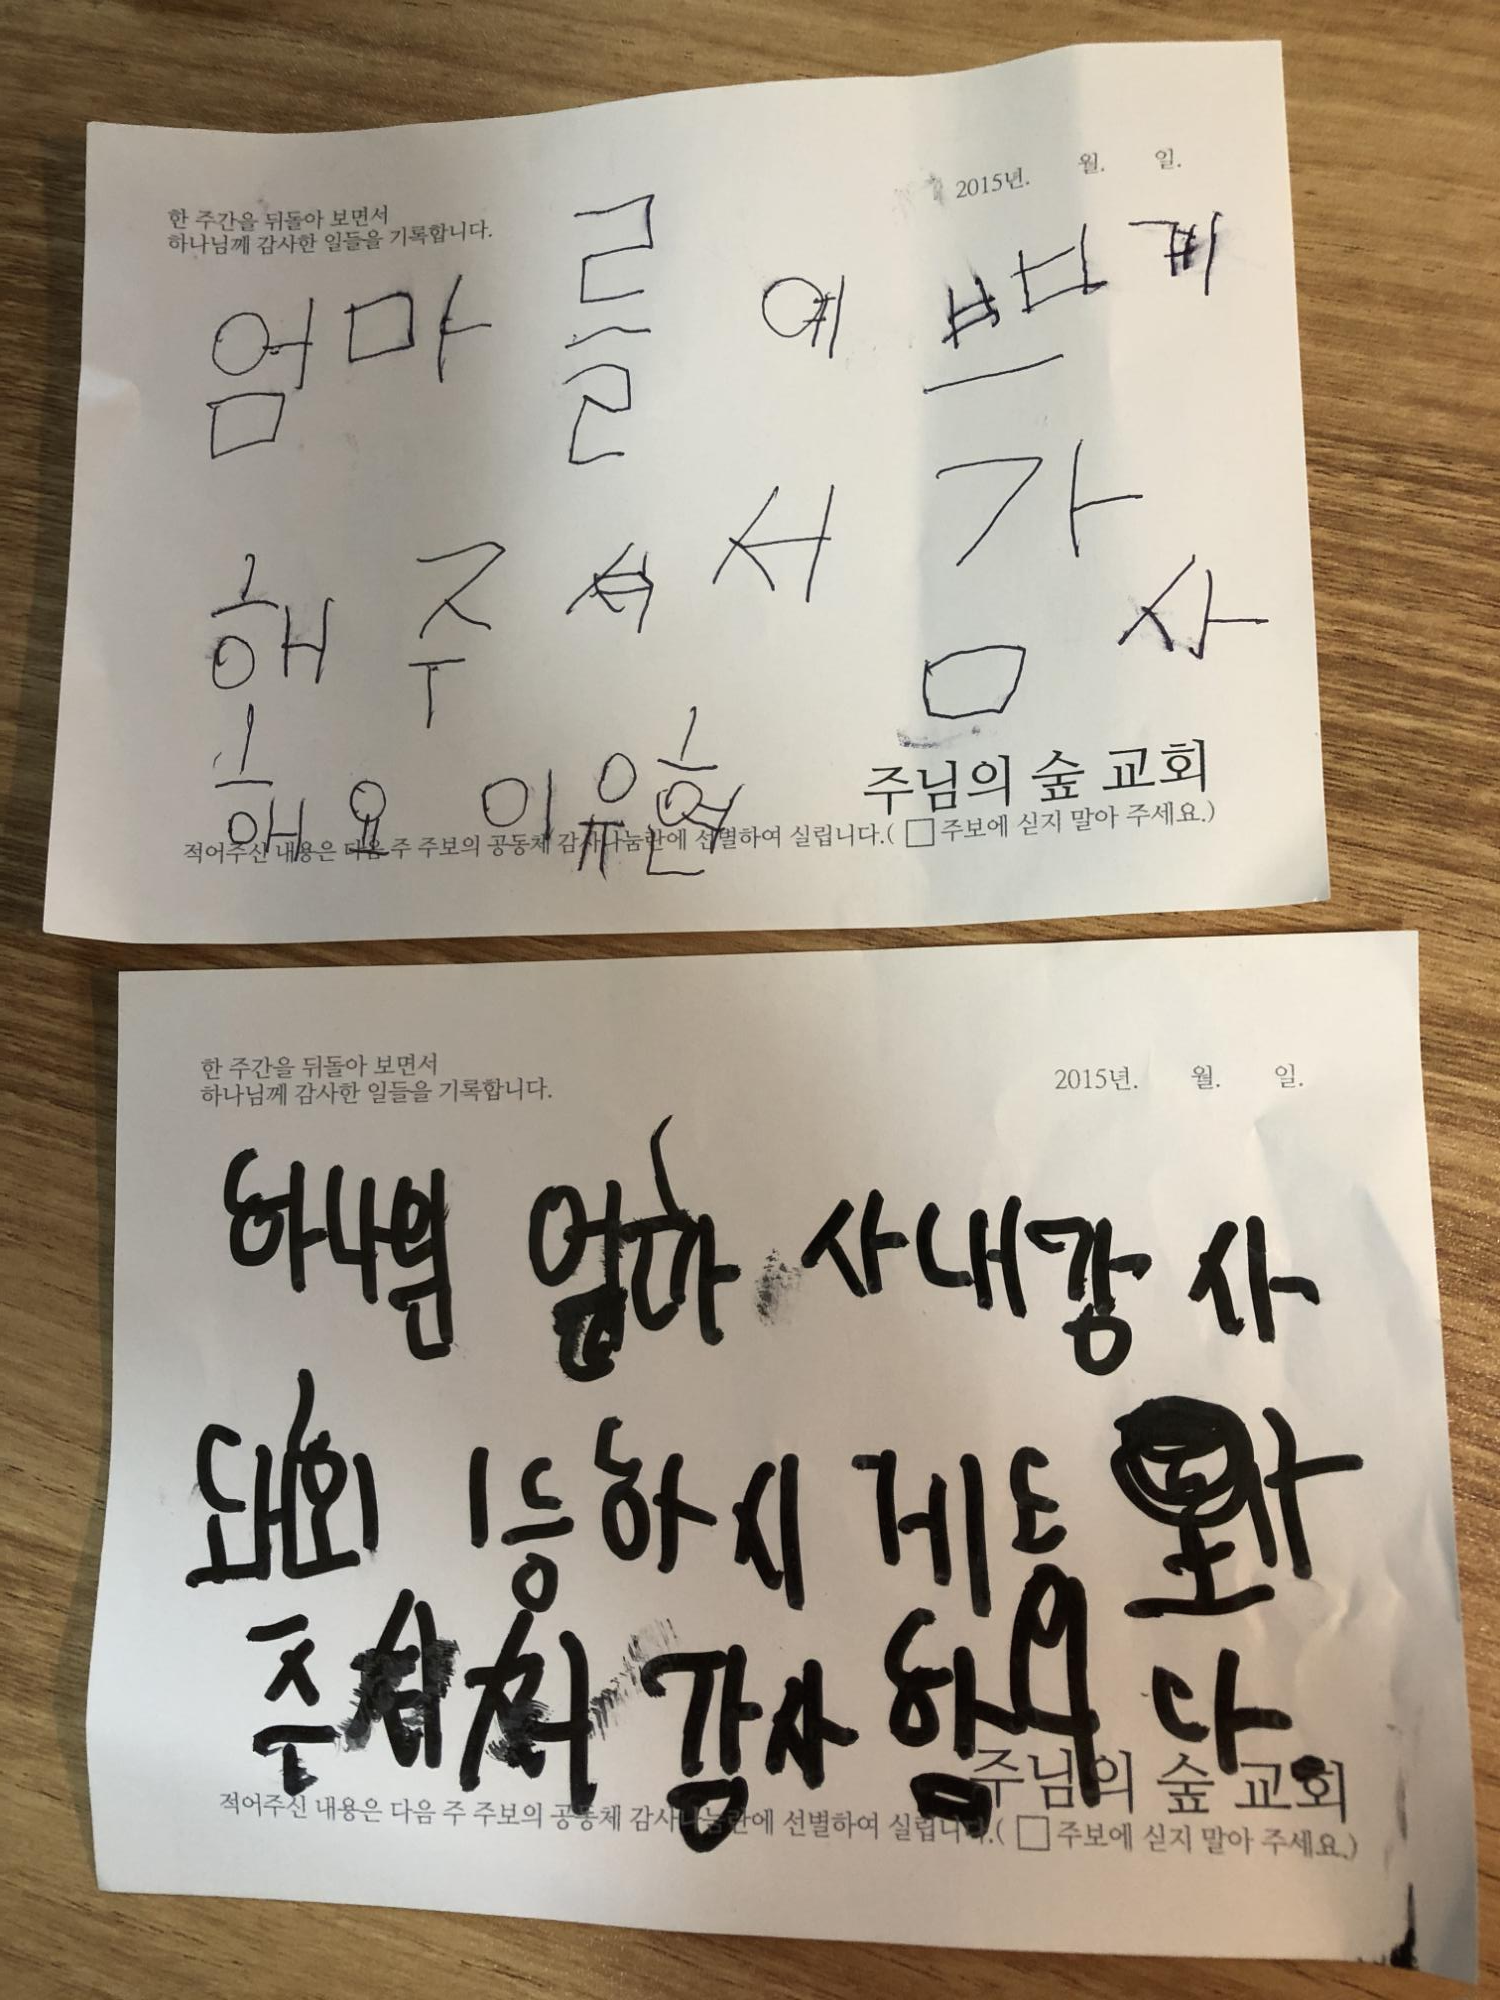 2015년.  월.  일.
한 주간을 뒤돌아 보면서
하나님께 감사한 일들을 기록합니다.
엄마를 예쁘게
해주셔서 감사
해요 이유현
주님의 숲 교회
적어주신 내용은 다음 주 주보의 공동체 감사나눔란에 선별하여 실립니다.( □ 주보에 싣지 말아 주세요.)
한 주간을 뒤돌아 보면서
하나님께 감사한 일들을 기록합니다.
2015년.  월.  일.
하나님 엄마 사내감사
대회 1등하시게도와
주셔서 감사합니다.
주님의 숲 교회
적어주신 내용은 다음 주 주보의 공동체 감사나눔란에 선별하여 실립니다.( □ 주보에 싣지 말아 주세요.)